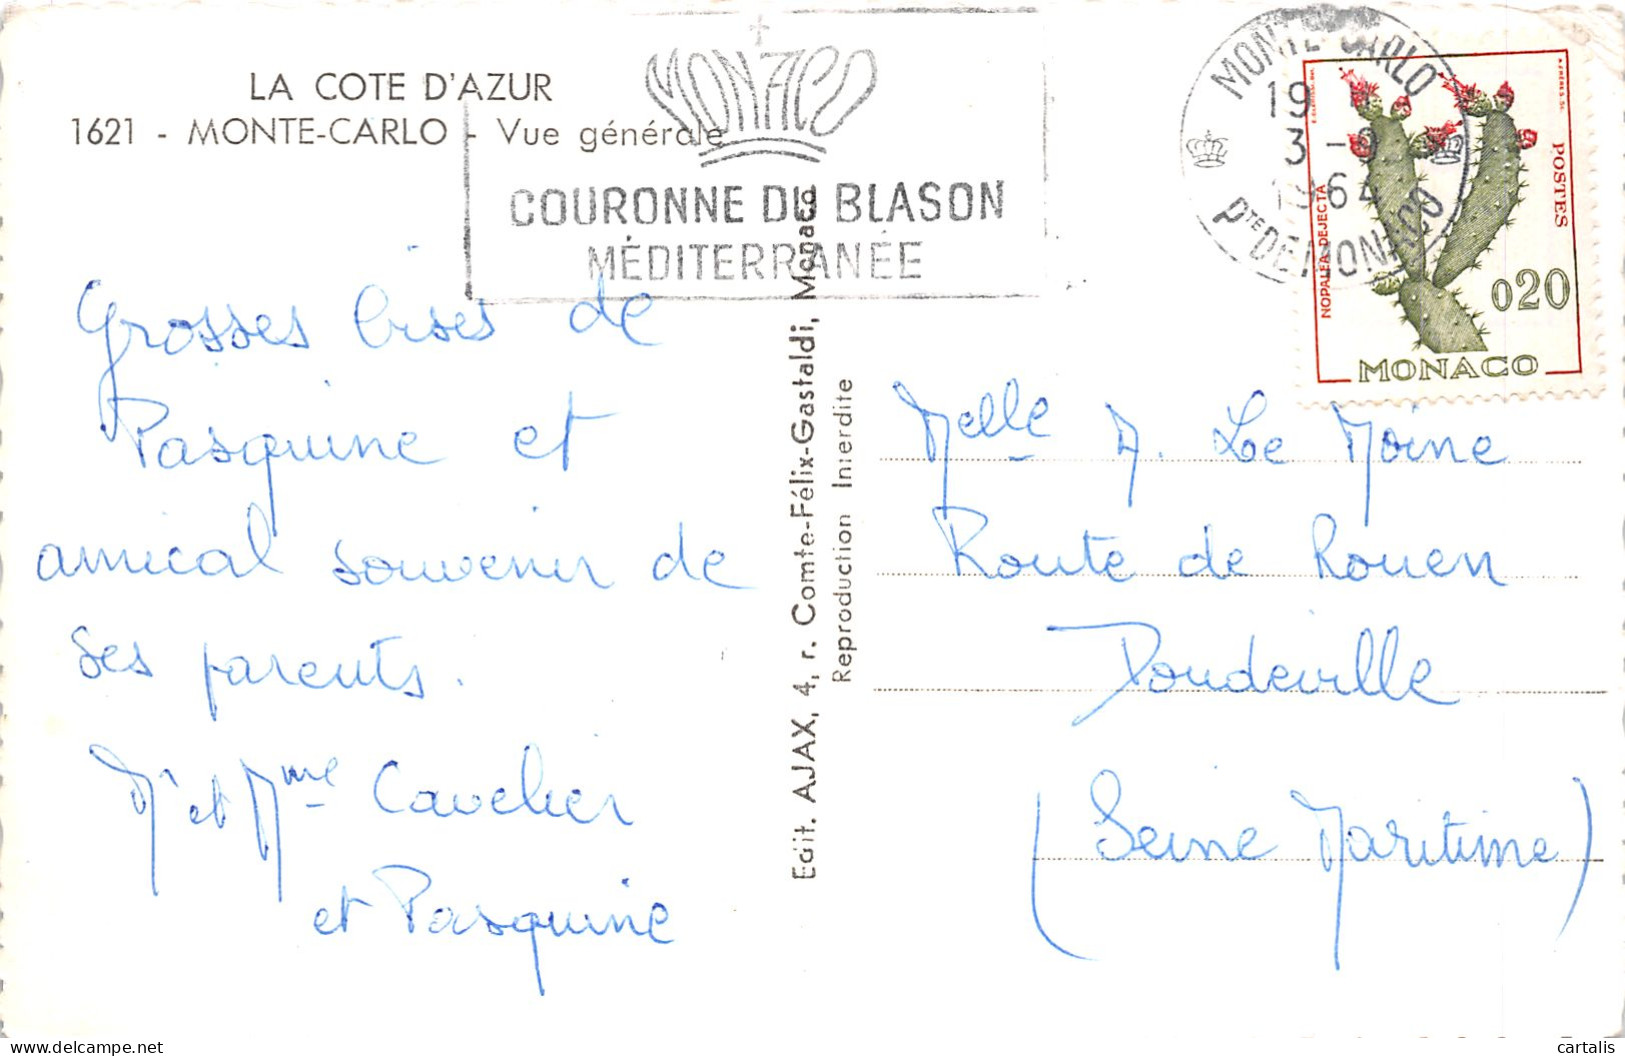 LA COTE D'AZUR
1621 - MONTE-CARLO - Vue générale
MONACO
COURONNE DU BLASON
MÉDITERRANÉE
MONTE-CARLO
19
3 - 9
1964
PTE DE MONACO
NOPALEA DEJECTA
POSTES
0.20
MONACO
Grosses bises de
Pasquine et
amical souvenir de
ses parents.
Mr et Mme Cavelier
et Pasquine
Edit. AJAX, 4, r. Comte-Félix-Gastaldi, Monaco
Reproduction Interdite
Melle A. Le Moine
Route de Rouen
Doudeville
(Seine Maritime)
cartalis